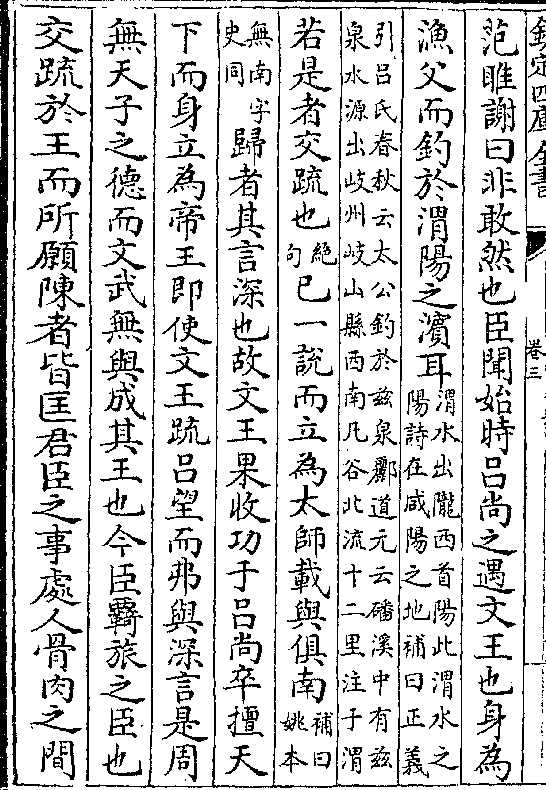 欽定四庫全書
卷三
范雎謝曰非敢然也臣聞始時呂尚之遇文王也身為
漁父而釣於渭陽之濱耳渭水出隴西首陽此渭水之陽詩在咸陽之地補曰正義
引呂氏春秋云太公釣於兹泉酈道元云磻溪中有兹泉水源出岐州岐山縣西南凡谷北流十二里注于渭
若是者交疏也絶句已一說而立為太師載與俱南補曰姚本
無南字史同歸者其言深也故文王果收功于呂尚卒擅天
下而身立為帝王即使文王疏呂望而弗與深言是周
無天子之德而文武無與成其王也今臣羇旅之臣也
交疏於王而所願陳者皆匡君臣之事處人骨肉之間